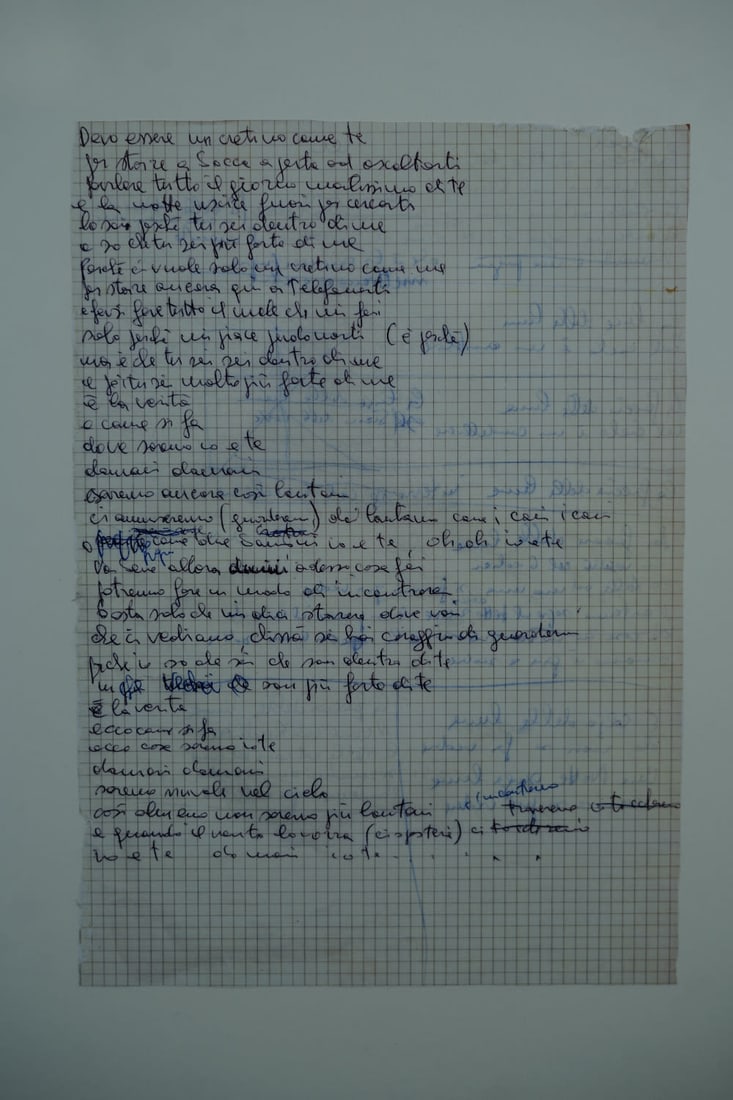 Devo essere un cretino come te
per stare a bocca aperta ad ascoltarti
parlare tutto il giorno malissimo di te
e la notte uscire fuori per cercarti
lo so perché tu sei dentro di me
e so che tu sei più forte di me
perché ci vuole solo un cretino come me
per stare ancora qui a Telefonarti
e farsi fare tutto il male che mi fai
solo perché mi piace perdonarti (è perché)
ma è che tu sei sei dentro di me
e perché sei molto più forte di me
è la verità
e come si fa
dove saremo io e te
domani domani
saremo ancora così lontani
ci annuseremo (guarderemo) da lontano come i cani i cani
o come due bambini io e te, oh di oh io e te
va bene allora adesso cosa fai
potremo fare in modo di incontrarci
basta solo che mi dica stasera dove vai
che ci vediamo chissà se hai coraggio di guardarmi
perché io so che sai che son dentro di te
son più forte di te
è la verità
ecco come si fa
ecco cosa saremo io te
domani domani
saremo nuvole nel cielo
così almeno non saremo più lontani
e quando il vento lo vorrà (ci sposterà) ci
io e te domani io te . . . .